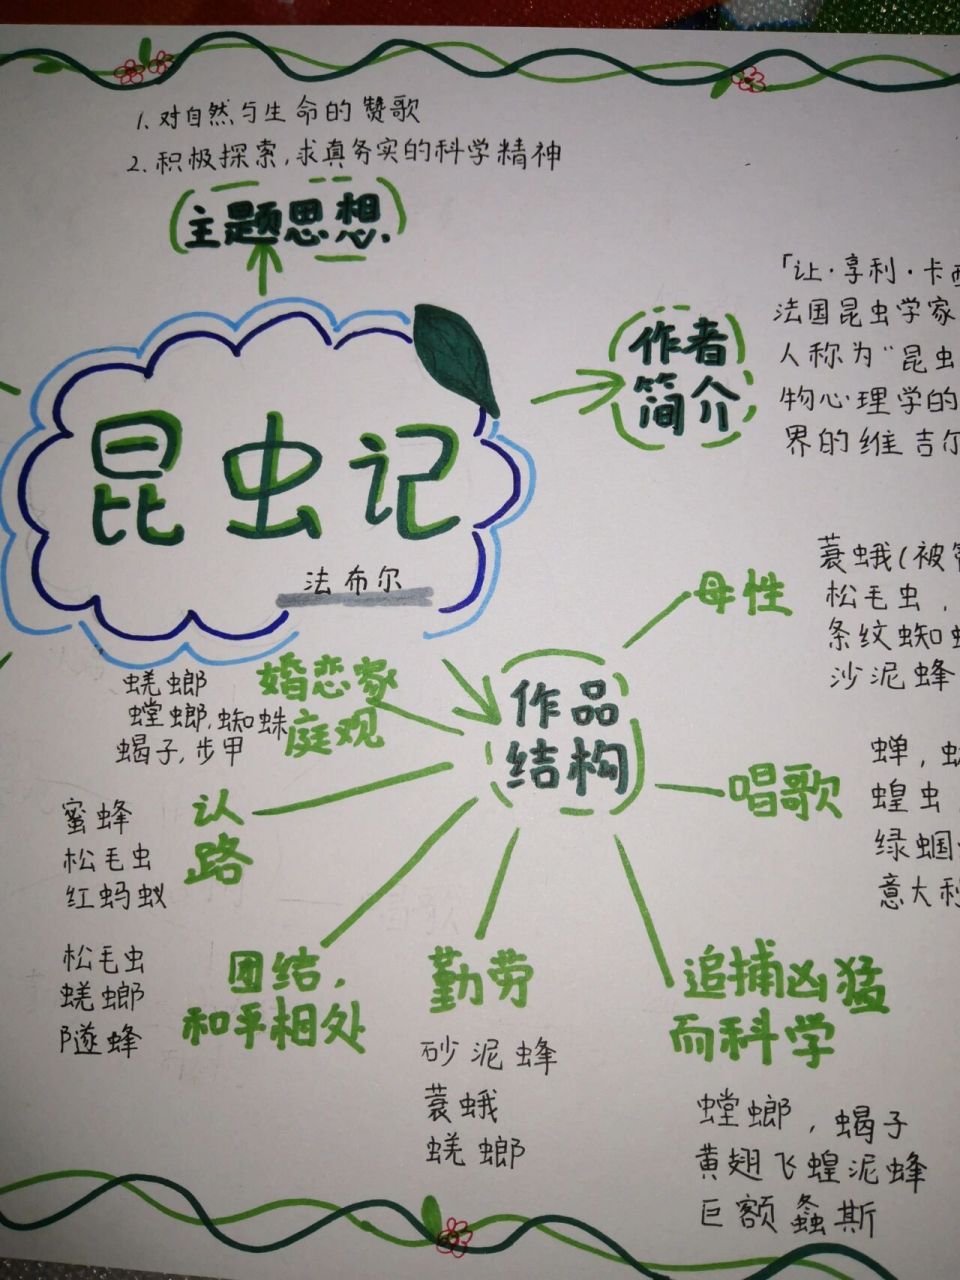 1. 对自然与生命的赞歌
2. 积极探索,求真务实的科学精神
主题思想.
「让·享利·卡西
法国昆虫学家
人称为"昆虫
物心理学的
界的维吉尔
作者
简介
昆虫记
法布尔
母性
蓑蛾(被管
松毛虫,
条纹蜘蛛
沙泥蜂
作品
结构
婚恋家
庭观
蜣螂
螳螂,蜘蛛
蝎子,步甲
唱歌
蝉,
蝗虫
绿蝈
意大利
认
路
蜜蜂
松毛虫
红蚂蚁
团结,
和平相处
松毛虫
蜣螂
隧蜂
勤劳
砂泥蜂
蓑蛾
蜣螂
追捕凶猛
而科学
螳螂,蝎子
黄翅飞蝗泥蜂
巨额螽斯